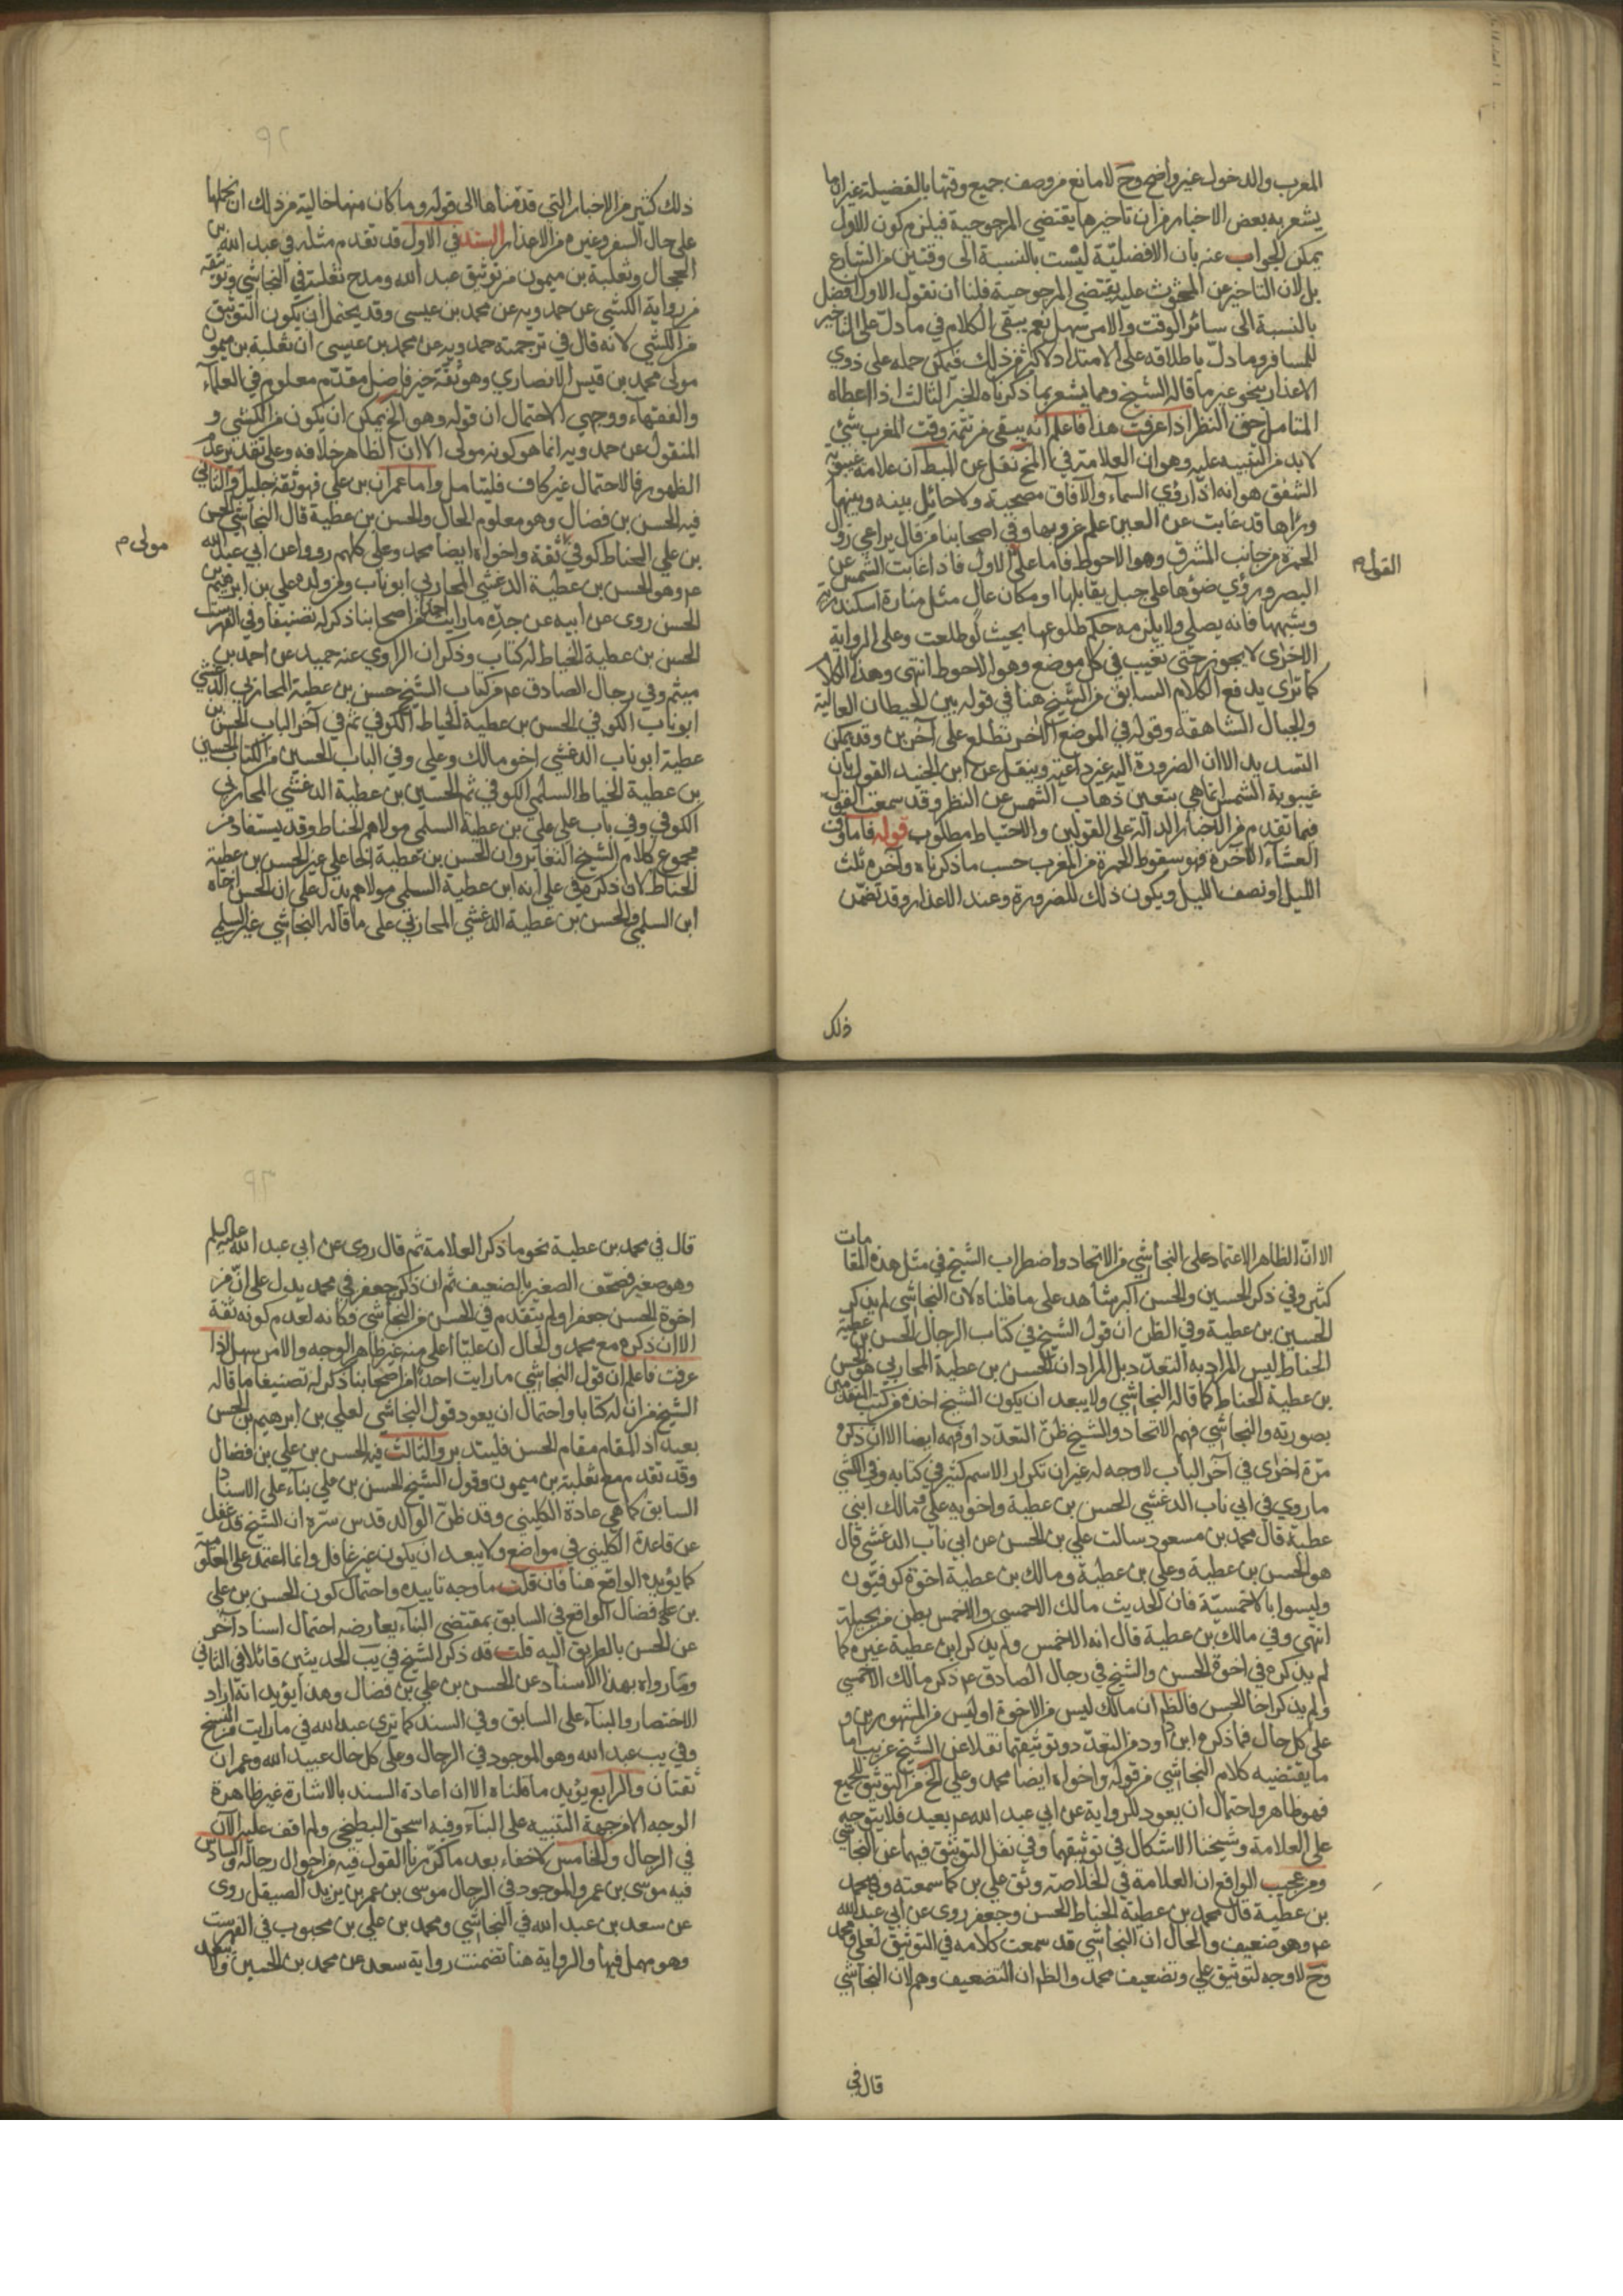 المغرب والدخول غير واضح وح لا مانع من وصف جميع وقتها بالفضيلة غير ان ما
يشعر به بعض الاخبار من ان تاخيرها يقتضي المرجوحية فيلزم كون الاول
يمكن الجواب عنه بان الافضلية ليست بالنسبة الى وقتين من الشارع
بل لان التاخير عن المحثوث عليه يقتضي المرجوحية فلنا ان نقول الاول افضل
بالنسبة الى سائر الوقت والامر سهل نعم يبقى الكلام في ما دل على التاخير
للمسافر وما دل باطلاقه على الامتداد لاكثر من ذلك فيمكن حمله على ذوي
الاعذار بنحو غير ما قاله الشيخ ومما يشعر بما ذكرناه الخبر الثالث اذا اعطاه
المتامل حق النظر اذا عرفت هذا فاعلم انه يبقى من تتمة وقت المغرب شئ
لا بد من التنبيه عليه وهو ان العلامة في المخ نقل عن المبط ان علامة غيبوبة
الشفق هو انه اذا رؤي السماء والآفاق مصحية ولا حائل بينه وبينها
وراها قد غابت عن العين علم غروبها وفي اصحابنا من قال يراعي زوال
الحمرة من جانب المشرق وهو الاحوط فاما على الاول فاذا غابت الشمس عن
القول م
البصر ورؤي ضوؤها على جبل يقابلها او مكان عال مثل منارة اسكندرية
وشبهها فانه يصلي ولا يلزمه حكم طلوعها بحيث لو طلعت وعلى الرواية
الاخرى لا يجوز حتى تغيب في كل موضع وهو الاحوط انتهى وهذا الكلام
كما ترى يدفع الكلام السابق من الشيخ هنا في قوله بين الحيطان العالية
والجبال الشاهقة وقوله في الموضع الآخر تطلع على آخرين وقد يمكن
التسديد الا ان الضرورة اليه غير داعية وينقل عن ابن الجنيد القول بان
غيبوبة الشمس انما هي بتعين ذهاب الشمس عن النظر وقد سمعت القول
فيما تقدم من الاخبار الدالة على القولين والاحتياط مطلوب قوله فاما وقت
العشاء الآخرة فهو سقوط الحمرة من المغرب حسب ما ذكرناه وآخره ثلث
الليل او نصف الليل ويكون ذلك للضرورة وعند الاعذار وقد تضمن
ذلك
ذلك كثير من الاخبار التي قدمناها الى قوله وما كان منها خالية من ذلك ان نحملها
على حال السفر وغيره من الاعذار السند في الاول قد تقدم مثله في عبد الله بن
الحجال وثعلبة بن ميمون من توثيق عبد الله ومدح ثعلبة في النجاشي وتوثقه
من رواية الكشي عن حمدويه عن محمد بن عيسى وقد يحتمل ان يكون التوثيق
من الكشي لانه قال في ترجمته حمدويه عن محمد بن عيسى ان ثعلبة بن ميمون
مولى محمد بن قيس الانصاري وهو ثقة خير فاضل مقدم معلوم في العلماء
والفقهاء ووجه الاحتمال ان قوله وهو الخ يمكن ان يكون من الكشي و
المنقول عن حمدويه انما هو كونه مولى الا ان الظاهر خلافه وعلى تقدير عدم
الظهور فالاحتمال غير كاف فليتامل واما عمران بن علي فهو ثقة جليل والثاني
فيه الحسن بن فضال وهو معلوم الحال والحسن بن عطية قال النجاشي الحسن
بن علي الحناط كوفي ثقة واخواه ايضا محمد وعلي كلهم رووا عن ابي عبد الله
مولى م
عم وهو الحسن بن عطية الدغشي المحاربي ابو ناب ومن ولده علي بن ابرهيم بن
الحسن روى عن ابيه عن جده ما رايت احدا من اصحابنا ذكر له تصنيفا وفي الفهرست
الحسن بن عطية الخياط له كتاب وذكر ان الراوي عنه حميد عن احمد بن
ميثم وفي رجال الصادق عم من كتاب الشيخ حسن بن عطية المحاربي الدغشي
ابو ناب الكوفي الحسن بن عطية الخياط الكوفي ثم في آخر الباب الحسن بن
عطية ابو ناب الدغشي اخو مالك وعلي وفي الباب الحسين من الكتاب الحسين
بن عطية الخياط السلمي الكوفي ثم الحسين بن عطية الدغشي المحاربي
الكوفي وفي باب علي علي بن عطية السلمي مولاهم الحناط وقد يستفاد من
مجموع كلام الشيخ التغاير وان الحسن بن عطية اخا علي غير الحسن بن عطية
الحناط لان ما ذكره في علي انه ابن عطية السلمي مولاهم يدل على ان الحسن اخاه
ابن السلمي والحسن بن عطية الدغشي المحاربي على ما قاله النجاشي غير السلمي
الا ان الظاهر الاعتماد على النجاشي من الاتحاد واضطراب الشيخ في مثل هذه المقامات
كثير وفي ذكر الحسين والحسن اكبر شاهد على ما قلناه لان النجاشي لم يذكر
الحسين بن عطية وفي الظن ان قول الشيخ في كتاب الرجال الحسن بن عطية
الحناط ليس المراد به التعدد بل المراد ان الحسن بن عطية المحاربي هو الحسن
بن عطية الحناط كما قاله النجاشي ولا يبعد ان يكون الشيخ اخذه من كتب المتقدمين
بصورته والنجاشي فهم الاتحاد والشيخ ظن التعدد او فهمه ايضا الا ان ذكره
مرة اخرى في آخر الباب لا وجه له غير ان تكرار الاسم كثير في كتابه وفي الكشي
ما روي في ابي ناب الدغشي الحسن بن عطية واخويه علي ومالك ابني
عطية قال محمد بن مسعود سالت علي بن الحسن عن ابي ناب الدغشي قال
هو الحسن بن عطية وعلي بن عطية ومالك بن عطية اخوة كوفيون
وليسوا بالاحمسية فان الحديث مالك الاحمسي والاحمس بطن من بجيلة
انتهى وفي مالك بن عطية قال انه الاحمس ولم يذكر ابن عطية غيره كما
لم يذكره في اخوة الحسن والشيخ في رجال الصادق عم ذكر مالك الاحمسي
ولم يذكر اخا الحسن فالظ ان مالك ليس من الاخوة او ليس من المشهورين و
على كل حال فما ذكره ابن داود من التعدد وتوثيقهما نقلا عن الشيخ غريب اما
ما يقتضيه كلام النجاشي من قوله واخواه ايضا محمد وعلي الخ من التوثيق للجميع
فهو ظاهر واحتمال ان يعود للرواية عن ابي عبد الله عم بعيد فلا يتوجه
على العلامة وشيخنا الاشكال في توثيقهما وفي نقل التوثيق فيهما عن النجاشي
ومن عجيب الواقع ان العلامة في الخلاصة وثق علي بن كما سمعته وفي محمد
بن عطية قال محمد بن عطية الحناط الحسن وجعفر روى عن ابي عبد الله
عم وهو ضعيف والحال ان النجاشي قد سمعت كلامه في التوثيق لعلي ومحمد
وح لا وجه لتوثيق علي وتضعيف محمد والظ ان التضعيف وهم لان النجاشي
قال في
قال في محمد بن عطية نحو ما ذكر العلامة ثم قال روى عن ابي عبد الله عليه السلم
وهو صغير فصحف الصغير بالضعيف ثم ان ذكر جعفر في محمد يدل على ان من
اخوة الحسن جعفرا ولم يتقدم في الحسن من النجاشي فكانه لعدم كونه ثقة
الا ان ذكره مع محمد والحال ان عليا اعلى منه غير ظاهر الوجه والامر سهل اذا
عرفت فاعلم ان قول النجاشي ما رايت احدا من اصحابنا ذكر له تصنيفا ما قاله
الشيخ من ان له كتابا واحتمال ان يعود قول النجاشي لعلي بن ابرهيم بن الحسن
بعيد اذ المقام مقام الحسن فليتدبر والثالث فيه الحسن بن علي بن فضال
وقد تقدم مع ثعلبة بن ميمون وقول الشيخ الحسن بن علي بناء على الاسناد
السابق كما هي عادة الكليني وقد ظن الوالد قدس سره ان الشيخ قد غفل
عن قاعدة الكليني في مواضع ولا يبعد ان يكون غير غافل وانما اعتمد على المعلومية
كما يؤيده الواقع هنا فان قلت ما وجه تاييده واحتمال كون الحسن بن علي
بن علي فضال الواقع في السابق بمقتضى البناء يعارضه احتمال اسناد آخر
عن الحسن بالطريق اليه قلت قد ذكر الشيخ في يب الحديثين قائلا في الثاني
وما رواه بهذا الاسناد عن الحسن بن علي بن فضال وهذا يؤيد انه اراد
الاختصار والبناء على السابق وفي السند كما ترى عبد الله في ما رايت من النسخ
وفي يب عبد الله وهو الموجود في الرجال وعلى كل حال عبيد الله وعمران
ثقتان والرابع يؤيد ما قلناه الا ان اعادة السند بالاشارة غير ظاهرة
الوجه الا من جهة التنبيه على البناء وفيه اسحق البطيخي ولم اقف عليه الآن
في الرجال والخامس لا خفاء بعد ما كررنا القول فيه من احوال رجاله والسادس
فيه موسى بن عمر والموجود في الرجال موسى بن عمر بن يزيد الصيقل روى
عن سعد بن عبد الله في النجاشي ومحمد بن علي بن محبوب في الفهرست
وهو مهمل فيها والرواية هنا تضمنت رواية سعد عن محمد بن الحسين